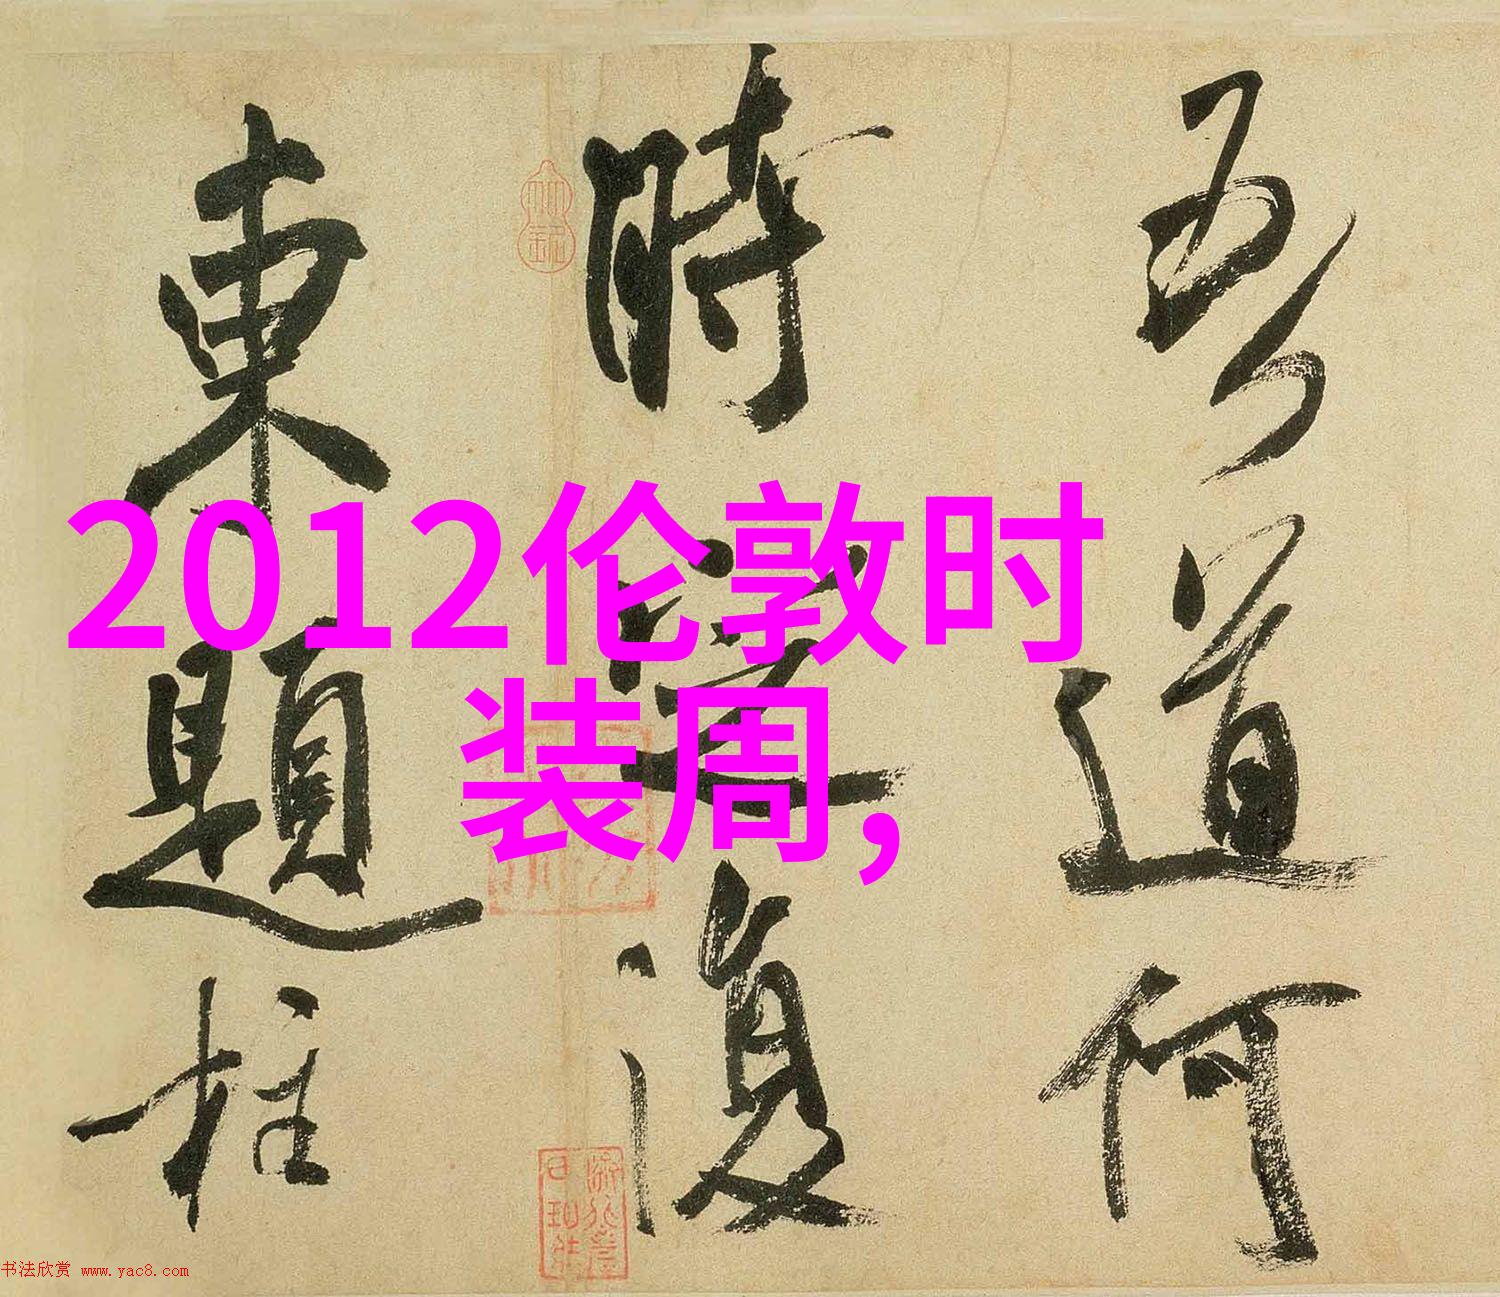 吾道何
時定復
東題柱
2012伦敦时
装周,
书法欣赏 www.yac8.com